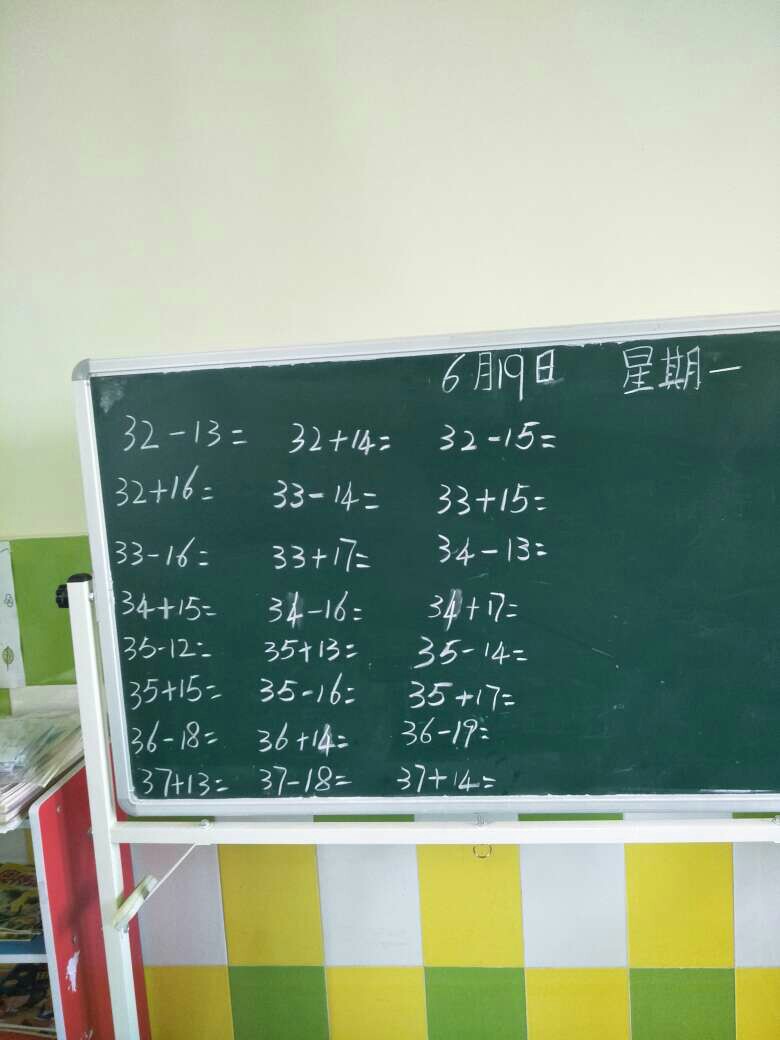 6月19日 星期一
32-13= 32+14= 32-15=
32+16= 33-14= 33+15=
33-16= 33+17= 34-13=
34+15= 34-16= 34+17=
35-12= 35+13= 35-14=
35+15= 35-16= 35+17=
36-18= 36+14= 36-19=
37+13= 37-18= 37+14=